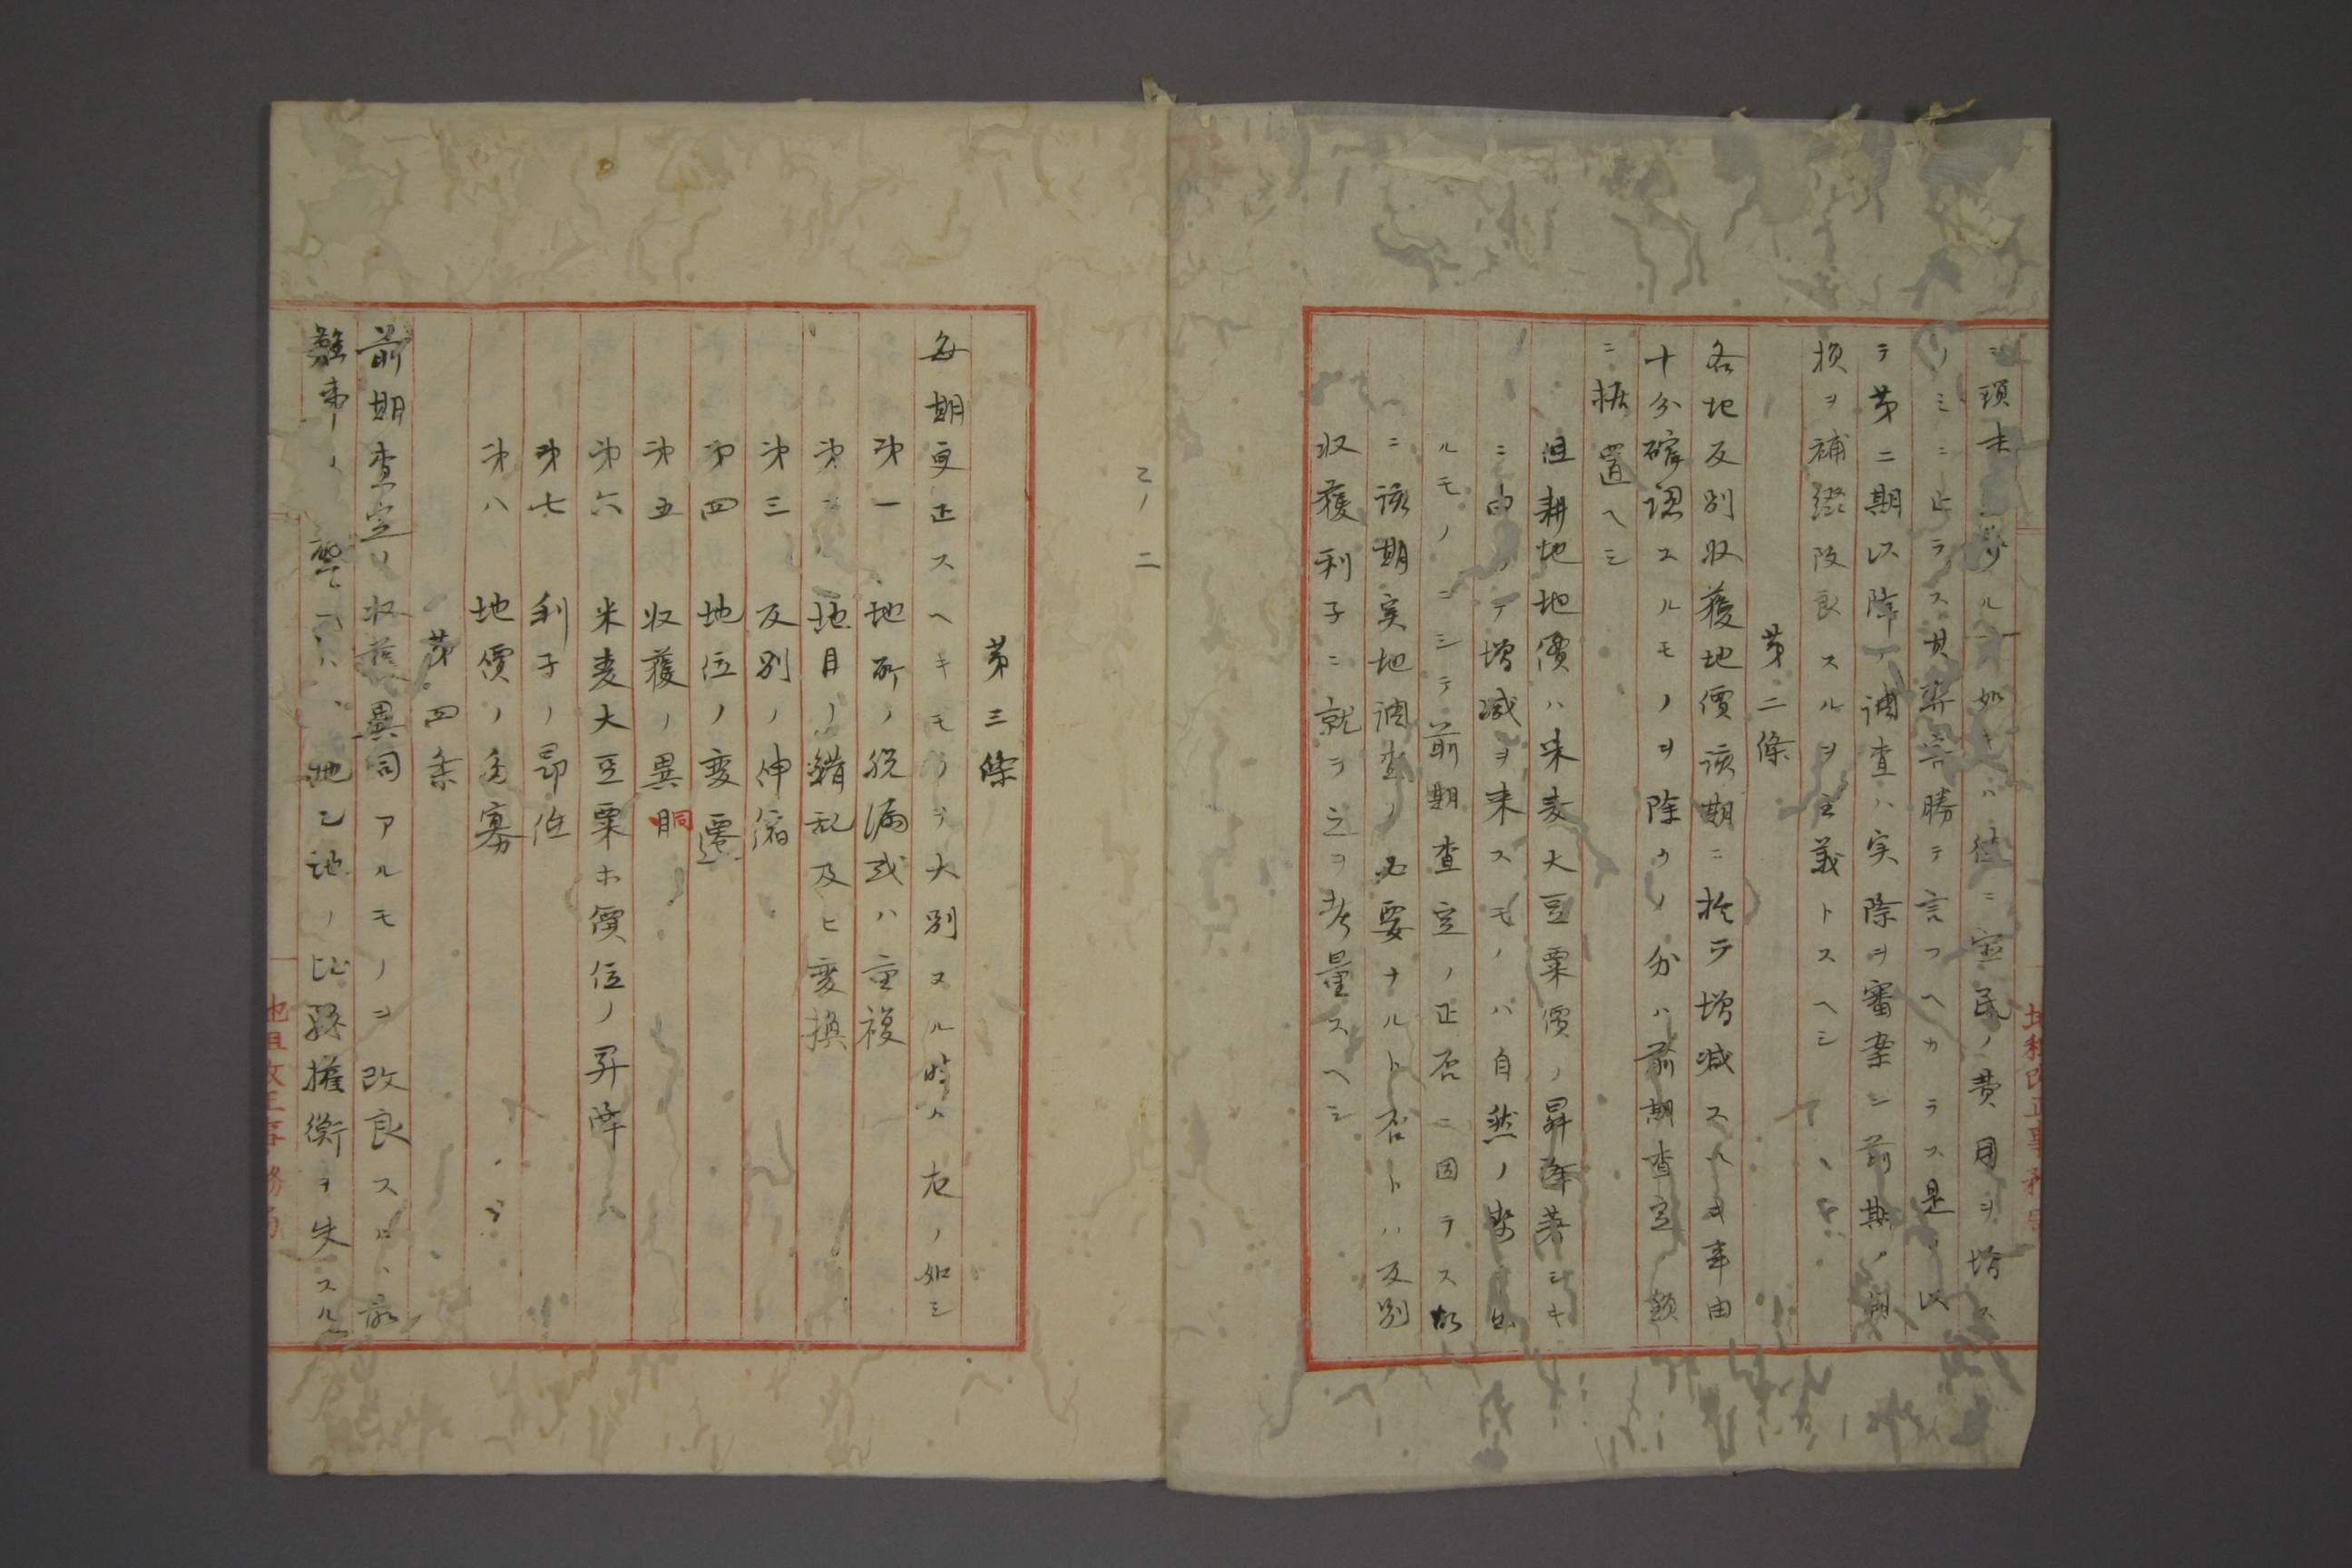 ニ瑣末ニ渉ルカ如キハ徒ニ官民ノ費用ヲ増ス
ノミニ止ラス其弊害勝テ言フヘカラス是ヲ以
テ第二期以降ノ調査ハ実際ヲ審案シ前期ノ
損ヲ補綴改良スルヲ主義トスヘシ
第二條
各地反別収獲地價該期ニ於テ増減スヘキ事由
十分確認スルモノヲ除クノ分ハ前期査定ノ額
ニ据置ヘシ
但耕地地價ハ米麦大豆粟價ノ昇降著シキ
ニ由リテ増減ヲ来スモノハ自然ノ勢ニ出
ルモノニシテ前期査定ノ正否ニ因テス故
ニ該期実地調査ノ必要ナルト否トハ反別
収獲利子ニ就テ之ヲ考量スヘシ
乙ノ二
第三條
毎期更正スヘキモノヲ大別スル時ハ左ノ如シ
第一 地所ノ脱漏或ハ重複
第二 地目ノ錯乱及ヒ変換
第三 反別ノ伸縮
第四 地位ノ変遷
第五 収獲ノ異同
第六 米麦大豆粟ホ價位ノ昇降
第七 利子ノ昂低
第八 地價ノ多寡
第四条
前期査定ノ収獲異同アルモノヲ改良スルハ
難事ノ 地乙地ノ比較権衡ヲ失スル
地租改正事務局
地租改正事務局